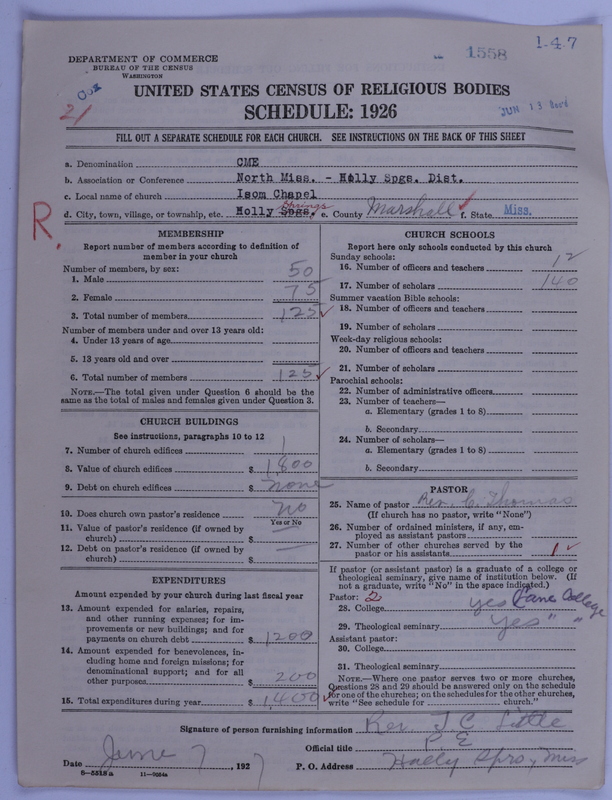 1558
1-4-7
DEPARTMENT OF COMMERCE
BUREAU OF THE CENSUS
WASHINGTON
21
UNITED STATES CENSUS OF RELIGIOUS BODIES
SCHEDULE: 1926
JUN 13
FILL OUT A SEPARATE SCHEDULE FOR EACH CHURCH. SEE INSTRUCTIONS ON THE BACK OF THIS SHEET
a. Denomination CME
b. Association or Conference North Miss. - Holly Spgs. Dist.
c. Local name of church Isom Chapel
Springs
d. City, town, village, or township, etc. Holly Spgs. e. County Marshall f. State Miss.
R.
MEMBERSHIP
Report number of members according to definition of
member in your church
Number of members, by sex:
1. Male 50
2. Female 75
3. Total number of members 125
Number of members under and over 13 years old:
4. Under 13 years of age
5. 13 years old and over
6. Total number of members 125
NOTE.—The total given under Question 6 should be the
same as the total of males and females given under Question 3.
CHURCH BUILDINGS
See instructions, paragraphs 10 to 12
7. Number of church edifices 1
8. Value of church edifices $ 1800
9. Debt on church edifices $ none
10. Does church own pastor's residence no
Yes or No
11. Value of pastor's residence (if owned by
church) $
12. Debt on pastor's residence (if owned by
church) $
EXPENDITURES
Amount expended by your church during last fiscal year
13. Amount expended for salaries, repairs,
and other running expenses; for im-
provements or new buildings; and for
payments on church debt $ 1200
14. Amount expended for benevolences, in-
cluding home and foreign missions; for
denominational support; and for all
other purposes $ 200
15. Total expenditures during year $ 1,400
CHURCH SCHOOLS
Report here only schools conducted by this church
Sunday schools:
16. Number of officers and teachers 12
17. Number of scholars 140
Summer vacation Bible schools:
18. Number of officers and teachers
19. Number of scholars
Week-day religious schools:
20. Number of officers and teachers
21. Number of scholars
Parochial schools:
22. Number of administrative officers
23. Number of teachers—
a. Elementary (grades 1 to 8)
b. Secondary
24. Number of scholars—
a. Elementary (grades 1 to 8)
b. Secondary
PASTOR
25. Name of pastor Rev. C. Thomas
(If church has no pastor, write "None")
26. Number of ordained ministers, if any, em-
ployed as assistant pastors
27. Number of other churches served by the
pastor or his assistants 1
If pastor (or assistant pastor) is a graduate of a college or
theological seminary, give name of institution below. (If
not a graduate, write "No" in the space indicated.)
Pastor: 2
28. College yes Lane College
29. Theological seminary Yes " "
Assistant pastor:
30. College
31. Theological seminary
NOTE.—Where one pastor serves two or more churches,
Questions 28 and 29 should be answered only on the schedule
for one of the churches; on the schedules for the other churches,
write "See schedule for church."
Signature of person furnishing information Rev J C Little
Official title P E
Date June 7, 1927 P. O. Address Holly Sprs, Miss
8—5518a 11—9054a